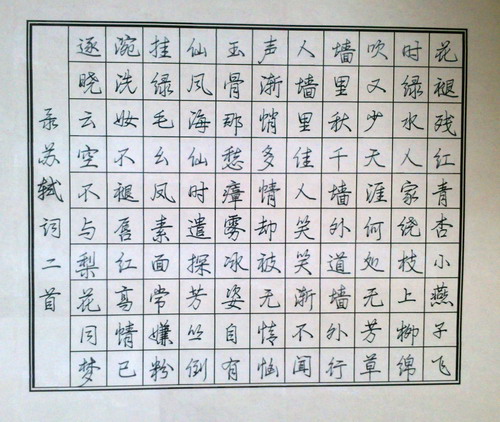 花褪残红青杏小燕子飞
时绿水人家绕枝上柳绵
吹又少天涯何处无芳草
墙里秋千墙外道墙外行
人墙里佳人笑笑渐不闻
声渐悄多情却被无情恼
玉骨那愁瘴雾冰姿自有
仙风海仙时遣探芳丛倒
挂绿毛幺凤素面常嫌粉
涴洗妆不褪唇红高情已
逐晓云空不与梨花同梦
录苏轼词二首